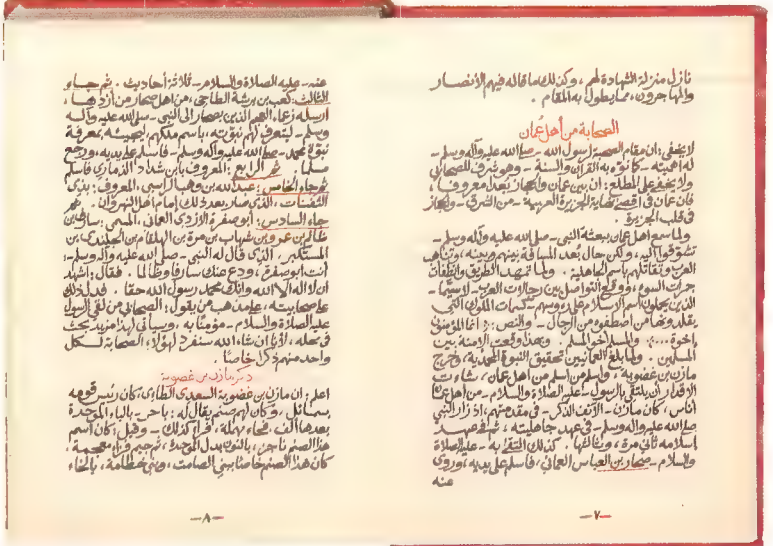 نازل منزلة الشهادة لهم، وكذلك ما قاله فيهم الأنصار
والمهاجرون، مما يطول به المقام .
الصحابة من أهل عُمان
لا يخفى: ان مقام الصحبة لرسول الله - صلى الله عليه وآله وسلم -
له أهميته - كما نوّه به القرآن والسنة - وهو شرف للصحابي
ولا يخفى على المطلع: ان بين عمان والحجاز بعد معروف،
فان عمان في اقصى نهاية الجزيرة العربية - من الشرق - والحجاز
في قلب الجزيرة .
ولما سمع اهل عمان ببعثة النبي - صلى الله عليه وآله وسلم -
تشوقوا اليه، ولكن حال بعد المسافة بينهم وبينه، وتناهب
العرب وتقاتلهم باسم الجاهلية . ولما تمهد الطريق وانطفأت
جمرات السوء، ووقع التواصل بين رجالات العرب - لا سيما -
الذين يحملون اسم الاسلام على رءوسهم - كسمات الملوك التي
يقلدونها من اصطفوه من الرجال - والنص: (انما المؤمنون
إخوة ...) والمسلم اخو المسلم . وبهذا وقعت الامنة بين
المسلمين . ولما بلغ العمانيين تحقيق النبوة المحمدية، وخرج
مازن بن غضوبة، واسلم من اسلم من اهل عمان، شاءت
الاقدار ان يلتقي بالرسول - عليه الصلاة والسلام - من اهل عمان
أناس، كان مازن - الآنف الذكر - في مقدمتهم، اذ زار النبي
صلى الله عليه وآله وسلم - في عهد جاهليته، ثم في عهد
اسلامه ثاني مرة، وثالثها . كذلك التقى به - عليه الصلاة
والسلام - صحار بن العباس العماني، فاسلم على يديه، وروى
عنه
- ٧ -
عنه - عليه الصلاة والسلام - ثلاثة أحاديث . ثم جاء
الثالث: كعب بن برشة الطاحي، من اهل صحار من أزدها،
ارسله زعماء العجم الذين بصحار إلى النبي - صلى الله عليه وآله
وسلم - ليتعرف لهم نبوّته، باسم ملكهم لمعرفة
نبوّة محمد - صلى الله عليه وآله وسلم - فاسلم على يديه، ورجع
مسلما . ثم الرابع: المعروف بابن شداد الذماري فاسلم
ثم جاء الخامس: عبد الله بن وهب الراسبي، المعروف: بذي
الثفنات، الذي صار بعد ذلك إمام اهل النهروان . ثم
جاء السادس: أبو صفرة الازدي العماني، المسمى: سارق بن
ظالم بن عمرو بن شهاب بن مرة بن الهلقام بن الجلندى بن
المستكبر . الذي قال له النبي - صلى الله عليه وآله وسلم -:
أنت أبو صفرة، ودع عنك سارقا وظالما . فقال: اشهد
ان لا اله الا الله وانك محمد رسول الله حقا . فدل ذلك
على صحابيته، على مذهب من يقول: الصحابي من لقي الرسول
عليه الصلاة والسلام - مؤمنا به، وسيأتي لهذا مزيد بحث
في محله، لأنا ان شاء الله سنفرد لهؤلاء الصحابة لكل
واحد منهم ذكرا خاصًا .
ذكر مازن بن غضوبة
اعلم: ان مازن بن غضوبة السعدي الطائي، كان رئيس قومه
بسمائل، وكان لهم صنم يقال له: باحر - بالباء الموحدة
بعدها ألف، فحاء مهملة، فراء كذلك - وقيل: كان اسم
هذا الصنم ناجر، بالنون بدل الموحدة، ثم جيم فراء معجمة .
كان هذا الصنم خاصًا ببني الصامت، وبني خطامة، بالخاء
- ٨ -